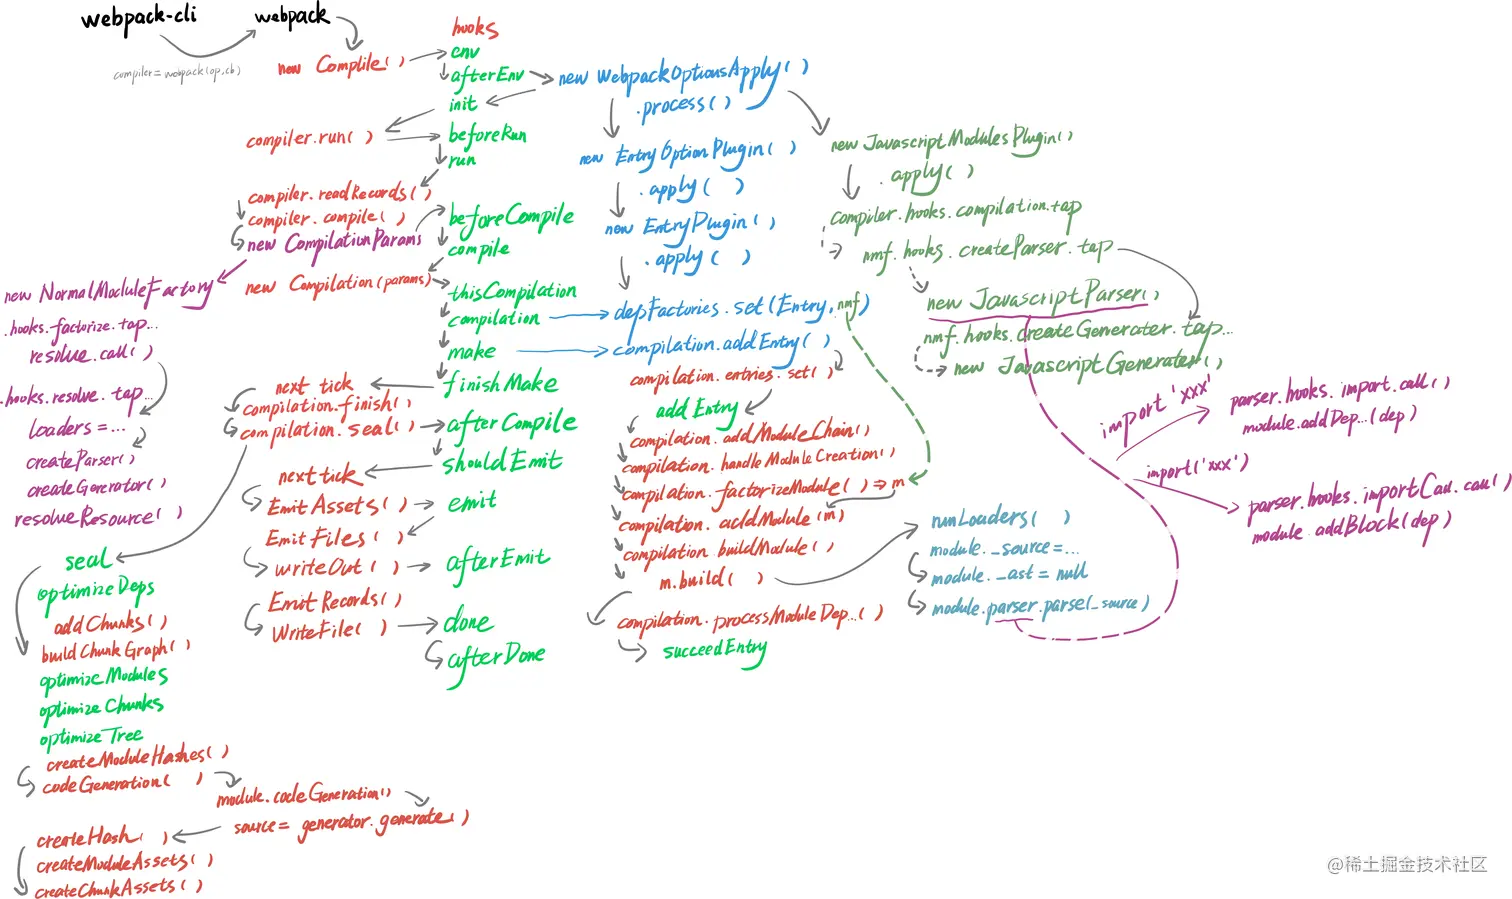 webpack-cli
webpack
compiler=webpack(op,cb)
new Complile()
hooks
env
afterEnv
init
compiler.run()
beforeRun
run
compiler.readRecords()
compiler.compile()
new CompilationParams
beforeCompile
compile
new Compilation(params)
thisCompilation
compilation
make
finishMake
next tick
compilation.finish()
compilation.seal()
afterCompile
shouldEmit
next tick
EmitAssets()
emit
EmitFiles()
writeOut()
afterEmit
EmitRecords()
WriteFile()
done
afterDone
new NormalModuleFactory
.hooks.factorize.tap...
resolve.call()
.hooks.resolve.tap...
loaders=...
createParser()
createGenerator()
resolveResource()
seal
optimizeDeps
addChunks()
buildChunkGraph()
optimizeModules
optimizeChunks
optimizeTree
createModuleHashes()
codeGeneration()
module.codeGeneration()
source= generator.generate()
createHash()
createModuleAssets()
createChunkAssets()
new WebpackOptionsApply()
.process()
new EntryOptionPlugin()
.apply()
new EntryPlugin()
.apply()
depFactories.set(Entry,nmf)
compilation.addEntry()
compilation.entries.set()
addEntry
compilation.addModuleChain()
compilation.handleModuleCreation()
compilation.factorizeModule() => m
compilation.addModule(m)
compilation.buildModule()
m.build()
compilation.processModuleDep...()
succeedEntry
new JavascriptModulesPlugin()
.apply()
compiler.hooks.compilation.tap
nmf.hooks.createParser.tap
new JavascriptParser()
nmf.hooks.createGenerater.tap...
new JavascriptGenerater()
runLoaders()
module._source=...
module._ast=null
module.parser.parse(_source)
import 'xxx'
parser.hooks.import.call()
module.addDep...(dep)
import('xxx')
parser.hooks.importCall.call()
module.addBlock(dep)
@稀土掘金技术社区